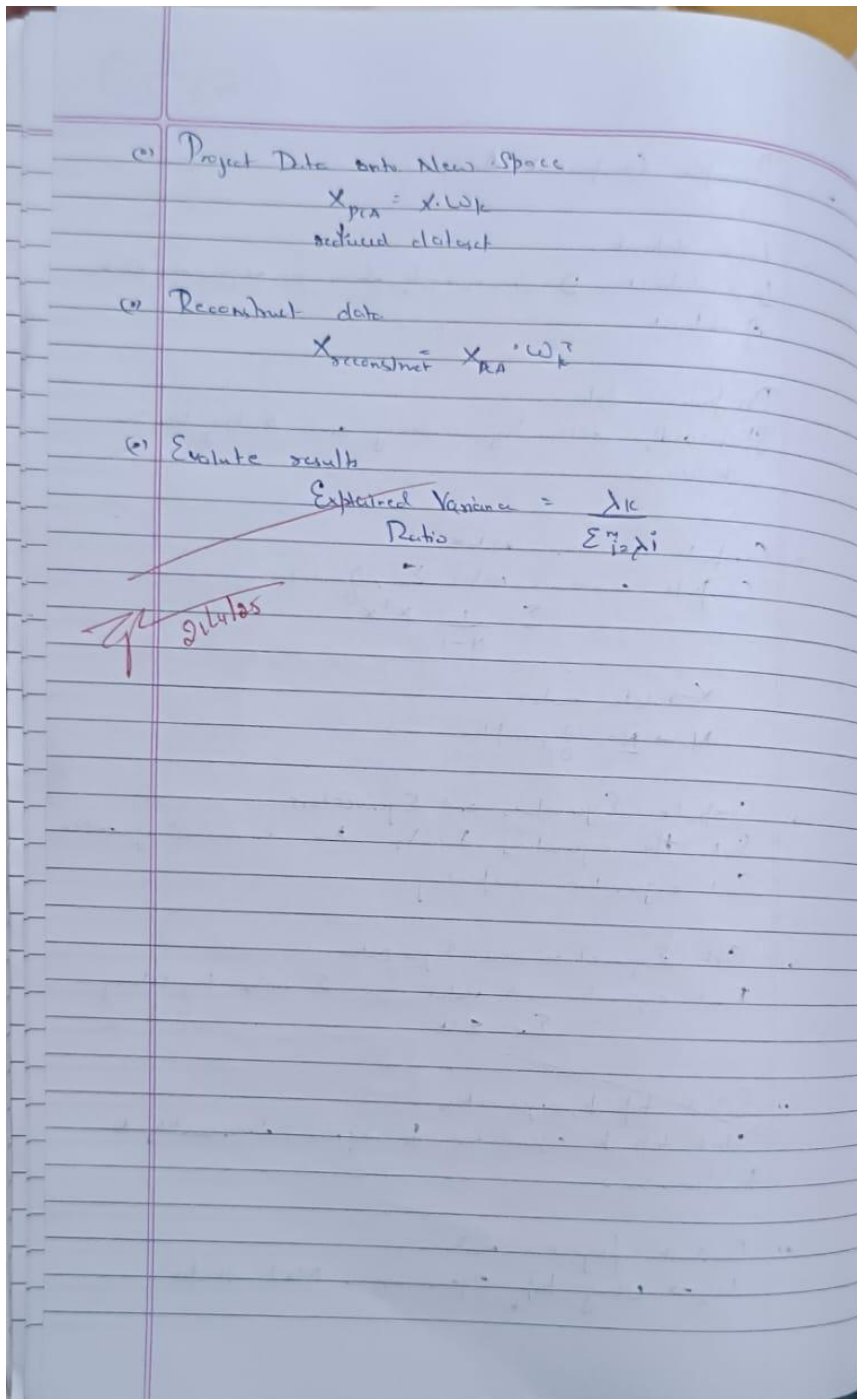 (•) Project Data onto New Space
X_PCA = X.W_k
reduced dataset
(•) Reconstruct data
X_reconstruct = X_PCA . W_k^T
(•) Evalute results
Explained Variance = λk
Ratio Σ^n_i= λi
21/4/25